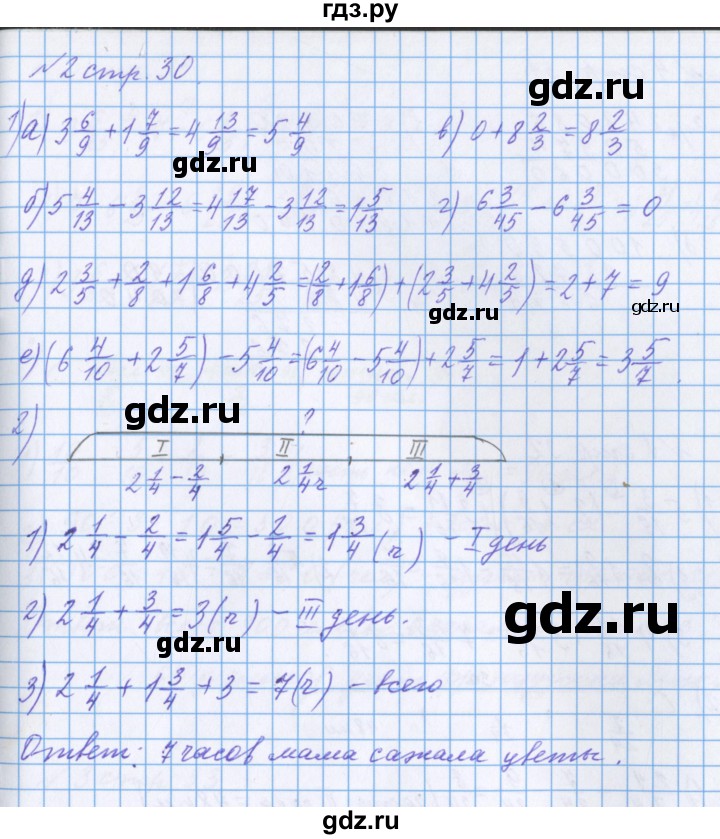 гдз.ру
№2 стр. 30
1) а) 3 6/9 + 1 7/9 = 4 13/9 = 5 4/9
в) 0 + 8 2/3 = 8 2/3
gdz.ru
gdz.ru
б) 5 4/13 - 3 12/13 = 4 17/13 - 3 12/13 = 1 5/13
г) 6 3/45 - 6 3/45 = 0
д) 2 3/5 + 2/8 + 1 6/8 + 4 2/5 = (2/8 + 1 6/8) + (2 3/5 + 4 2/5) = 2 + 7 = 9
gdz.ru
gdz.ru
е) (6 4/10 + 2 5/7) - 5 4/10 = (6 4/10 - 5 4/10) + 2 5/7 = 1 + 2 5/7 = 3 5/7.
gdz.ru
2)
?
I II III
2 1/4 - 2/4 2 1/4 ч 2 1/4 + 3/4
1) 2 1/4 - 2/4 = 1 5/4 - 2/4 = 1 3/4 (ч) - I день
gdz.ru
2) 2 1/4 + 3/4 = 3 (ч) - III день.
gdz.ru
3) 2 1/4 + 1 3/4 + 3 = 7 (ч) - всего
Ответ: 7 часов мама сажала цветы.
gdz.ru